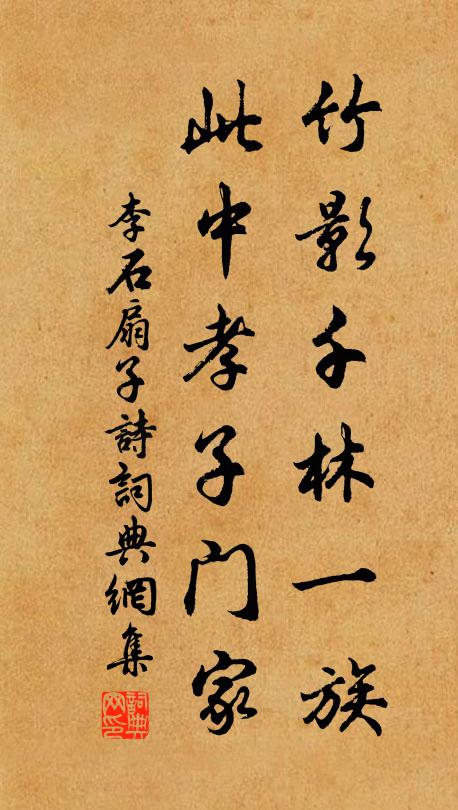 竹影千林一族
此中孝子门家
李石扇子詩詞典網集
詞典
网印